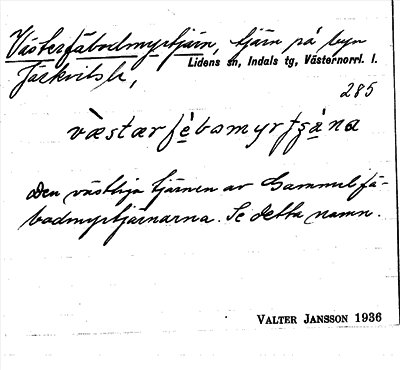 Västerfäbodmyrtjärn, tjärn på byn
Lidens sn, Indals tg, Västernorrl. l.
Järkvitsle,
285
væstærfèbomyrtʂæ̀na
Den västliga tjärnen av Gammelfä-
bodmyrtjärnarna. Se detta namn.
VALTER JANSSON 1936